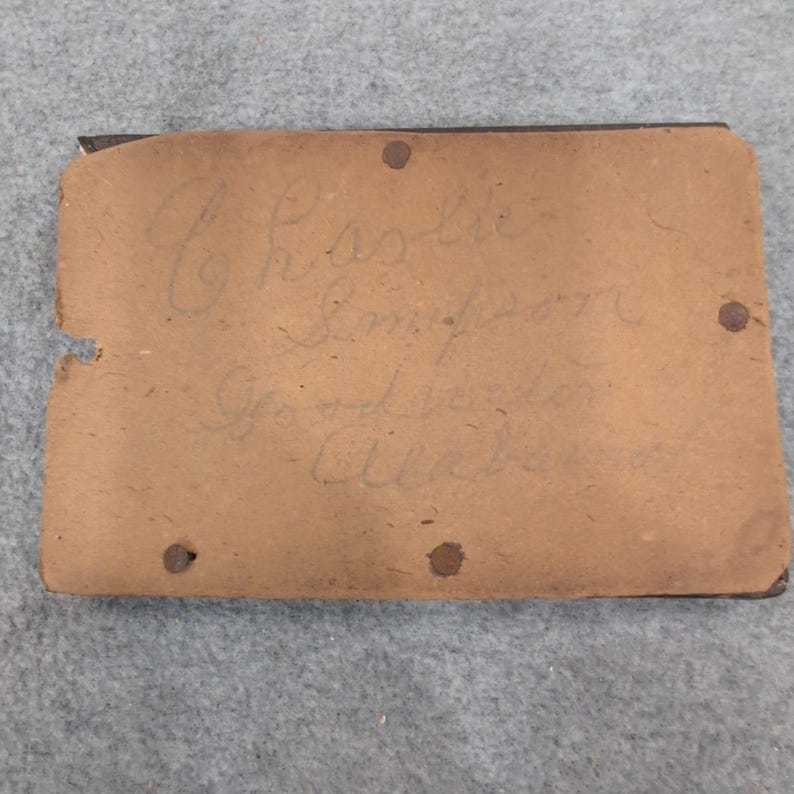 Charlie
Simpson
Goodwater
Alabama